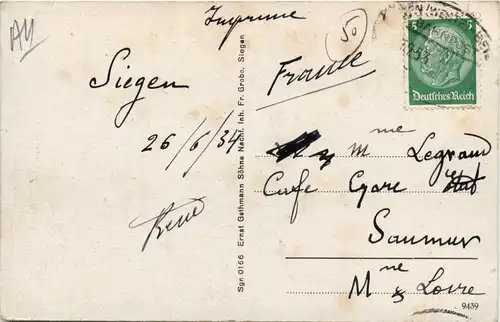 Imprimé
50
Siegen
France
5
Deutsches Reich
26/6/34
René
M me Legrand
Cafe Gare
Saumur
M ne & Loire
Sgn 0166 Ernst Gathmann Söhne Nachf. Inh. Fr. Grobe, Siegen
9439